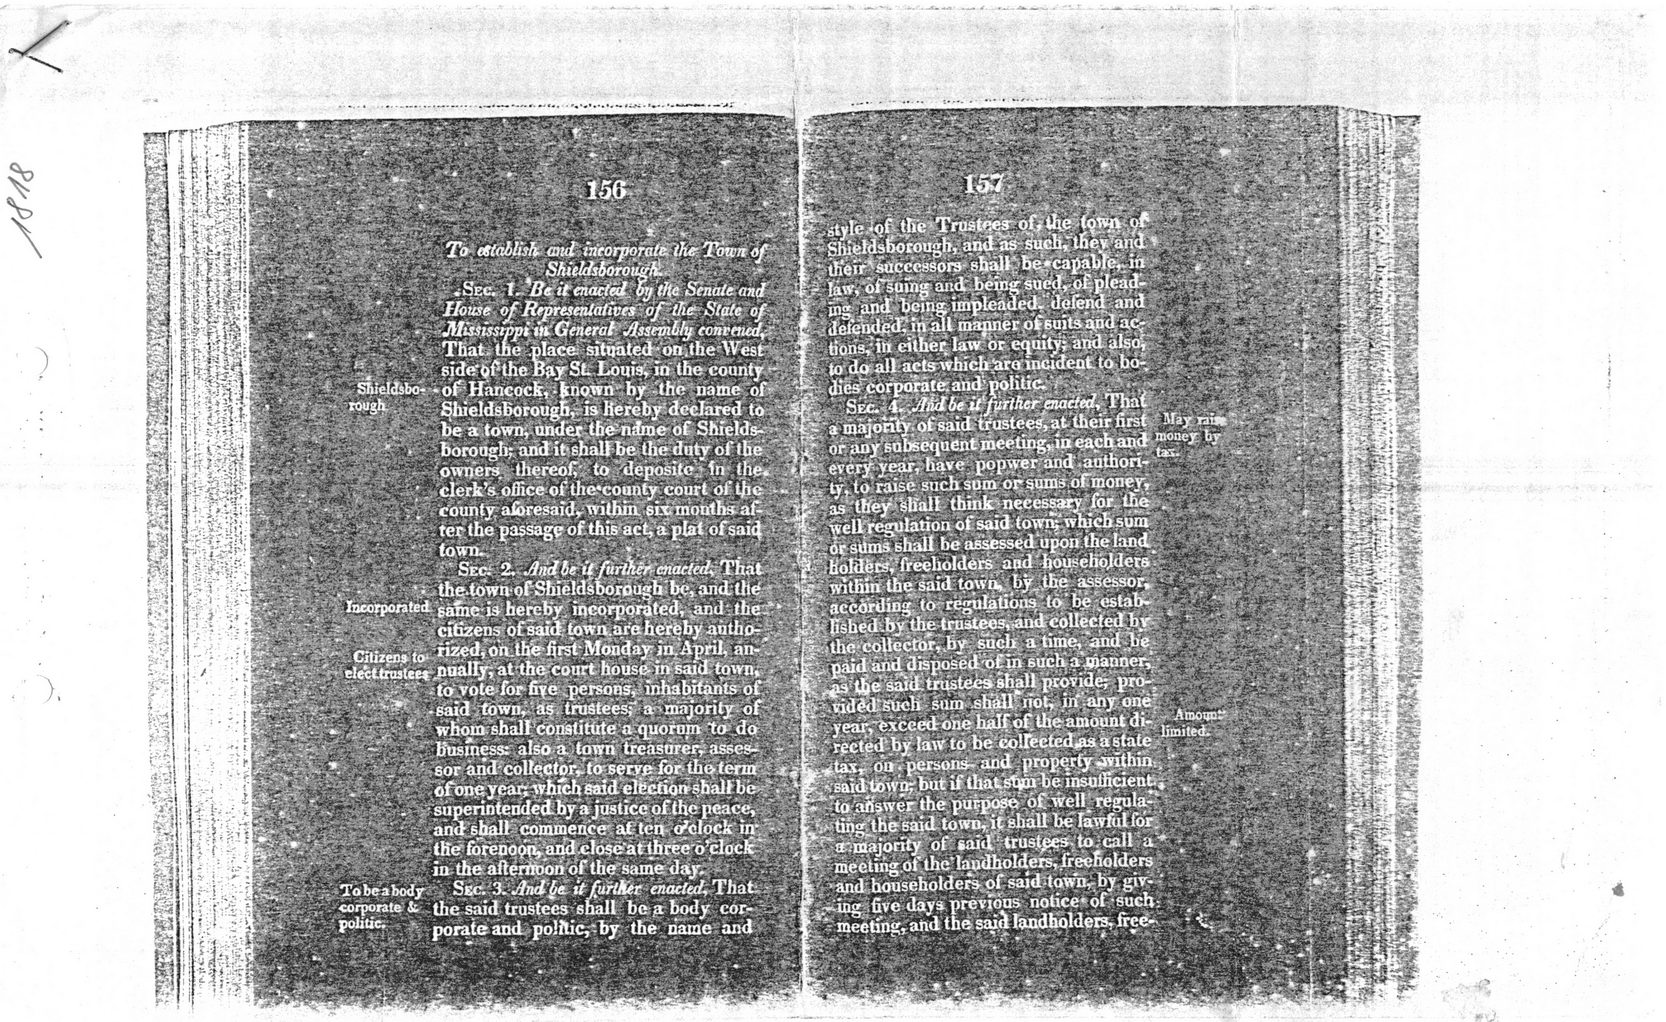 1818
156
To establish and incorporate the Town of
Shieldsborough.
SEC. 1. Be it enacted by the Senate and
House of Representatives of the State of
Mississippi in General Assembly convened,
That the place situated on the West
side of the Bay St. Louis, in the county
Shieldsbo-
rough
of Hancock, known by the name of
Shieldsborough, is hereby declared to
be a town, under the name of Shields-
borough; and it shall be the duty of the
owners thereof, to deposite in the
clerk's office of the county court of the
county aforesaid, within six months af-
ter the passage of this act, a plat of said
town.
SEC. 2. And be it further enacted, That
the town of Shieldsborough be, and the
Incorporated
same is hereby incorporated, and the
citizens of said town are hereby autho-
rized, on the first Monday in April, an-
Citizens to
elect trustees
nually, at the court house in said town,
to vote for five persons, inhabitants of
said town, as trustees; a majority of
whom shall constitute a quorum to do
business: also a town treasurer, asses-
sor and collector, to serve for the term
of one year; which said election shall be
superintended by a justice of the peace,
and shall commence at ten o'clock in
the forenoon, and close at three o'clock
in the afternoon of the same day.
To be a body
corporate &
politic.
SEC. 3. And be it further enacted, That
the said trustees shall be a body cor-
porate and politic, by the name and
157
style of the Trustees of the town of
Shieldsborough, and as such, they and
their successors shall be capable, in
law, of suing and being sued, of plead-
ing and being impleaded, defend and
defended, in all manner of suits and ac-
tions, in either law or equity; and also,
to do all acts which are incident to bo-
dies corporate and politic.
SEC. 4. And be it further enacted, That
May raise
money by
tax.
a majority of said trustees, at their first
or any subsequent meeting, in each and
every year, have popwer and authori-
ty, to raise such sum or sums of money,
as they shall think necessary for the
well regulation of said town; which sum
or sums shall be assessed upon the land
holders, freeholders and householders
within the said town, by the assessor,
according to regulations to be estab-
lished by the trustees, and collected by
the collector, by such a time, and be
paid and disposed of in such a manner,
as the said trustees shall provide; pro-
vided such sum shall not, in any one
Amount
limited.
year, exceed one half of the amount di-
rected by law to be collected as a state
tax, on persons and property within
said town; but if that sum be insufficient
to answer the purpose of well regula-
ting the said town, it shall be lawful for
a majority of said trustees to call a
meeting of the landholders, freeholders
and householders of said town, by giv-
ing five days previous notice of such
meeting, and the said landholders, free-